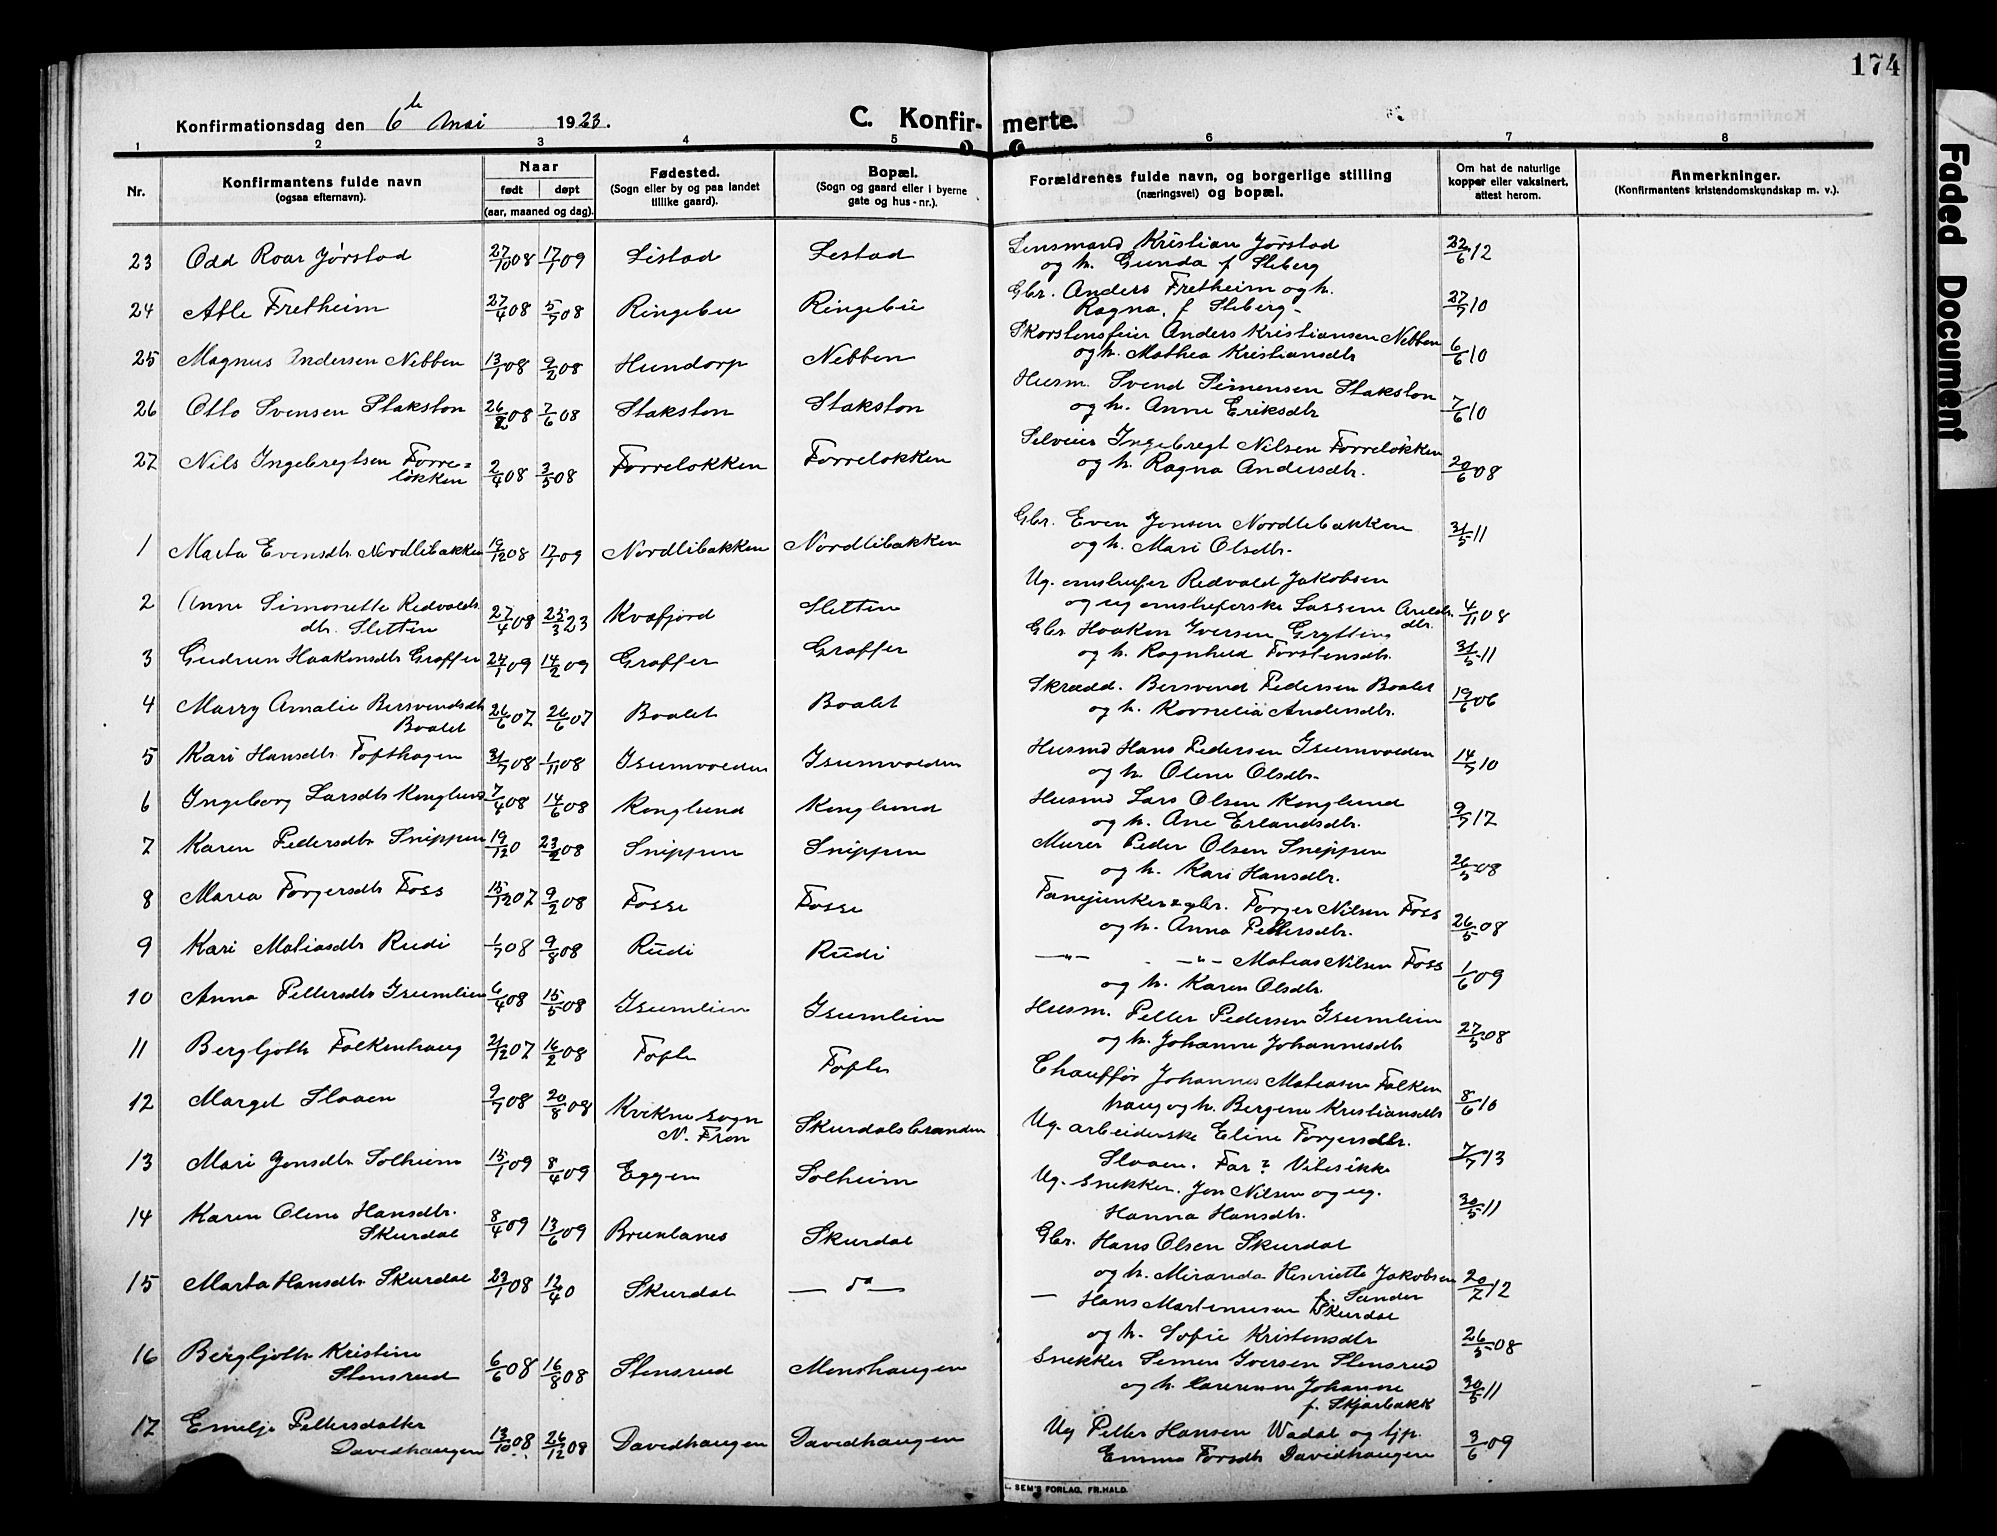 174
Konfirmationsdag den 6te Mai 1923.
C. Konfir- merte.
1 2 3 4 5 6 7 8
Nr. Konfirmantens fulde navn (ogsaa efternavn). Naar født døpt (aar, maaned og dag). Fødested. (Sogn eller by og paa landet tillike gaard). Bopæl. (Sogn og gaard eller i byerne gate og hus-nr.). Forældrenes fulde navn, og borgerlige stilling (næringsvei) og bopæl. Om hat de naturlige kopper eller vaksinert, attest herom. Anmerkninger. (Konfirmantens kristendomskundskap m. v.).
23 Odd Roar Jørstad 27/10 08 17/1 09 Listad Listad Lensmand Kristian Jørstad
og h. Gunda f. Stiberg 22/6 12
24 Atle Fretheim 27/4 08 5/7 08 Ringebu Ringebu Gbr. Anders Fretheim og h.
Ragna, f. Stiberg - 27/7 10
25 Magnus Andersen Nebben 13/1 08 9/2 08 Hundorp Nebben Skorstensfeier Anders Kristiansen Nebben
og h. Mathea Kristiansdtr 6/6 10
26 Otto Svensen Stakston 26/2 08 7/6 08 Stakston Stakston Husm. Svend Simensen Stakston
og h. Anne Eriksdtr 7/6 10
27 Nils Ingebregtsen Torre=
løkken 2/4 08 3/5 08 Torreløkken Torreløkken Selveier Ingebregt Nilsen Torreløkken
og h. Ragna Andersdtr. 20/6 08
1 Marta Evensdtr Nordlibakken 19/12 08 17/1 09 Nordlibakken Nordlibakken Gbr. Even Jonsen Nordlibakken
og h. Mari Olsdtr. 31/5 11
2 Anne Simonette Redvalds
dtr. Sletten 27/4 08 25/3 23 Kvæfjord Sletten Ug. omstreifer Redvald Jakobsen
og ug omstreiferske dtr. 4/11 08
3 Gudrun Haakensdtr Graffer 24/1 09 14/2 09 Graffer Graffer Gbr Haaken Iversen Grytting
og h. Ragnhild Torstensdtr. 31/5 11
4 Marry Amalie Bersvendsdtr
Baalet 26/6 07 Baalet Baalet Skrædd. Bersvend Pedersen Baalet
og h. Kornelia Andersdtr. 19/6 06
5 Kari Hansdtr. Tofthagen 31/7 08 1/11 08 Isumvolden Isumvolden Husmd Hans Pedersen Isumvolden
og h. Oline Olsdtr. 14/7 10
6 Ingeborg Larsdtr Konglund 7/4 08 14/6 08 Konglund Konglund Husmd Lars Olsen Konglund
og h. Ane Erlandsdtr. 9/7 12
7 Karen Pedersdtr Snippen 19/12 0 23/2 08 Snippen Snippen Murer Peder Olsen Snippen
og h. Kari Hansdtr. 26/5 08
8 Maria Torgersdtr Foss 15/12 07 9/2 08 Fosse Fosse Fanejunker & gbr. Torger Nilsen Foss
og h. Anna Pettersdtr. 26/5 08
9 Kari Matiasdtr Rudi 1/7 08 9/8 08 Rudi Rudi -"- -"- Matias Nilsen Foss
og h. Karen Olsdtr. 1/6 09
10 Anna Pettersdtr Isumlien 6/4 08 15/5 08 Isumlien Isumlien Husm. Petter Pedersen Isumlien
og h. Johanne Johannesdtr 27/5 08
11 Bergljoth Falkenhaug 21/12 07 16/2 08 Tofte Tofte Chauffør Johannes Matiasen Falken
haug og h. Bergine Kristiansdtr 8/6 10
12 Margit Slaaen 9/7 08 20/8 08 Kvikne sogn
N. Fron Skurdalsbranden Ug. arbeiderske Eline Torgersdtr.
Slaaen. Far? Vites ikke 7/7 13
13 Mari Jonsdtr Solheim 15/1 09 8/4 09 Eggen Solheim Ug. snekker. Jon Nilsen og ug.
Hanna Hansdtr. 30/5 11
14 Karen Oline Hansdtr.
Skurdal 8/4 09 13/6 09 Brunlanes Skurdal Gbr. Hans Olsen Skurdal
og h. Miranda Henriette Jakobsen
f. Sunder 20/7 12
15 Marta Hansdtr Skurdal 23/1 08 12/4 0 Skurdal — do — — Hans Martinusen Skurdal
og h. Sofie Kristensdtr 26/5 08
16 Bergljoth Kristine
Stensrud 6/6 08 16/8 08 Stensrud Monshaugen Snekker Simen Iversen Stensrud
og h. Johanne
f. Skjærbakk 30/5 11
17 Emelje Pettersdatter
Davidhaugen 13/10 08 26/12 08 Davidhaugen Davidhaugen Ug Petter Hansen Wadal og tjp.
Emma Torsdtr Davidhaugen 3/6 09
SEM'S FORLAG, FR.HALD.
Faded Document